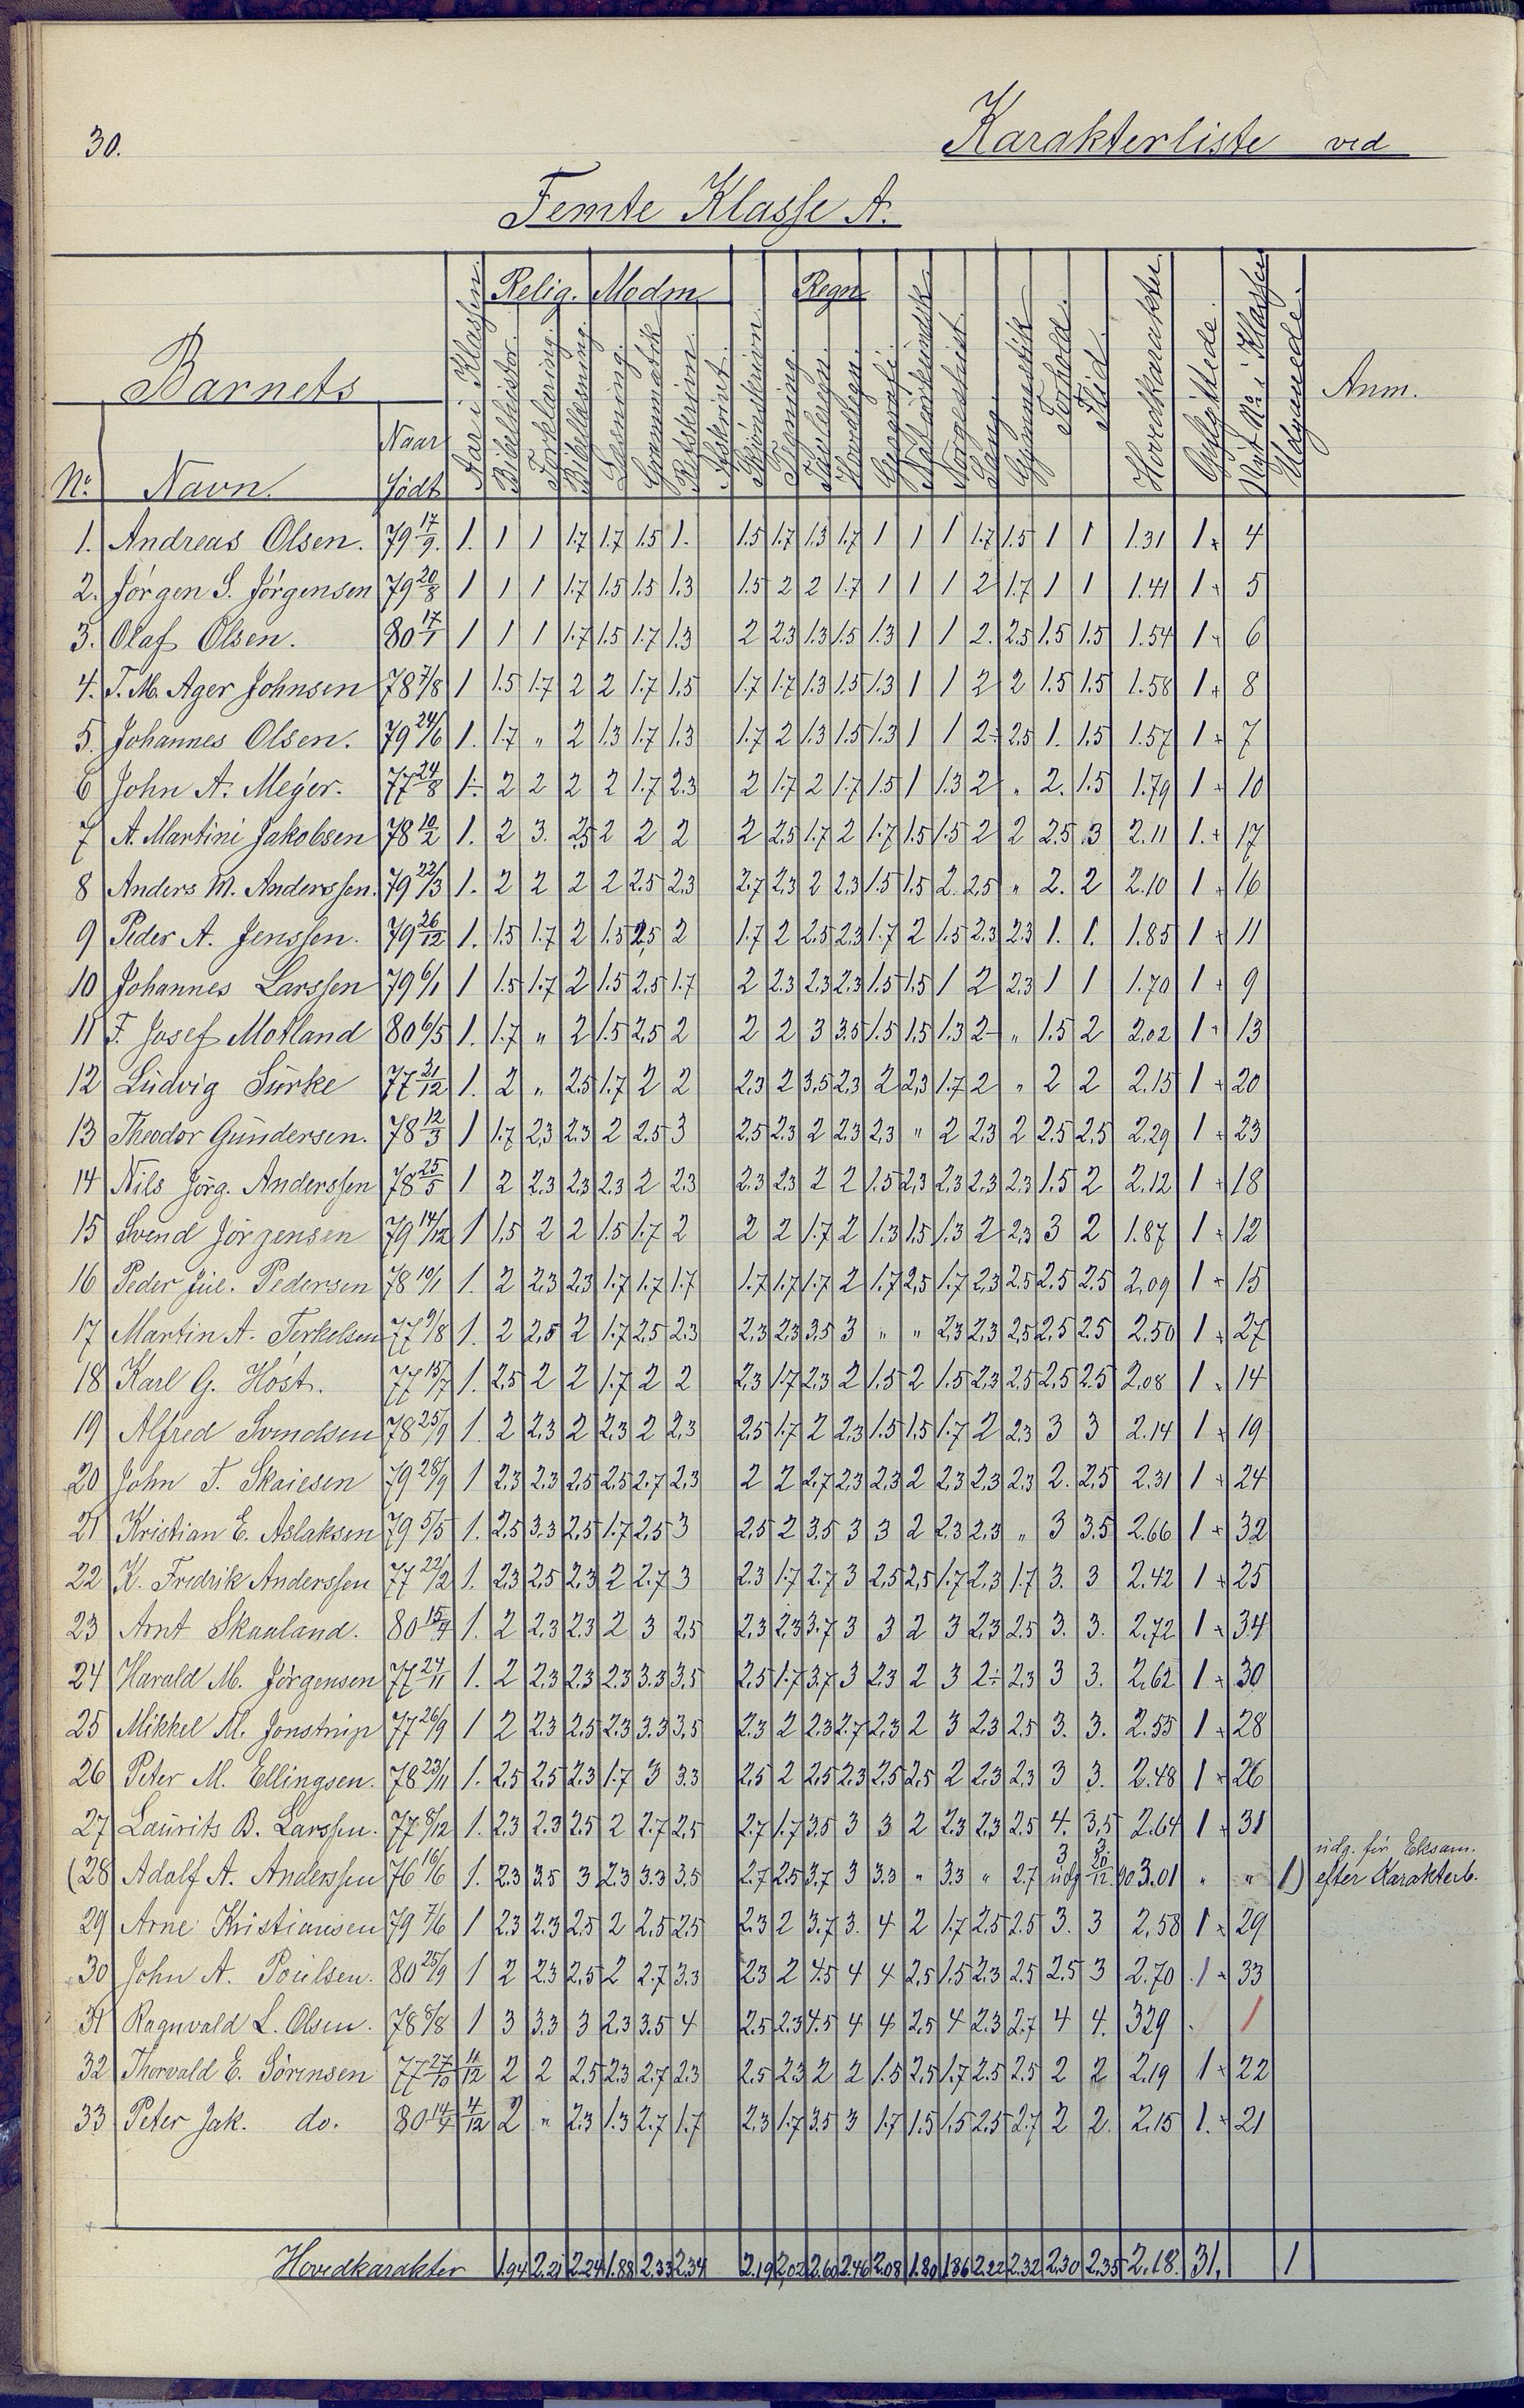 30.
Karakterliste ved
Femte Klasse A.
Relig. Modm Regn
Aar i Klassen. Bibelhistor. Forklaring. Bibellæsning. Læsning. Grammatik Retskrivn. Afskrivt. Skjönskrivn. Tegning. Tavleregn. Hovedregn. Geografi. Naturkundsk. Norgeshist. Sang. Gymnastik Forhold. Flid. Hovedkarakter. Opflyttede. Nyt No. i Klassen Udgaaede.
Barnets Anm.
No. Navn. Naar Födt
1. Andreas Olsen. 79 17/9. 1. 1 1 1.7 1.7 1.5 1. 1.5 1.7 1.3 1.7 1 1 1 1.7 1.5 1 1 1.31 1 + 4
2. Jörgen S. Jörgensen 79 20/8 1 1 1 1.7 1.5 1.5 1.3 1.5 2 2 1.7 1 1 1 2 1.7 1 1 1.41 1 + 5
3. Olaf Olsen. 80 17/1 1 1 1 1.7 1.5 1.7 1.3 2 2.3 1.3 1.5 1.3 1 1 2. 2.5 1.5 1.5 1.54 1 + 6
4. T. M. Ager Johnsen 78 7/8 1 1.5 1.7 2 2 1.7 1.5 1.7 1.7 1.3 1.5 1.3 1 1 2 2 1.5 1.5 1.58 1 + 8
5. Johannes Olsen. 79 24/6 1. 1.7 " 2 1.3 1.7 1.3 1.7 2 1.3 1.5 1.3 1 1 2÷ 2.5 1. 1.5 1.57 1 + 7
6 John A. Meyer. 77 24/8 1÷ 2 2 2 2 1.7 2.3 2 1.7 2 1.7 1.5 1 1.3 2 " 2. 1.5 1.79 1 + 10
7 A. Martini Jakobsen 78 10/2 1. 2 3. 2.5 2 2 2 2 2.5 1.7 2 1.7 1.5 1.5 2 2 2.5 3 2.11 1. + 17
8 Anders M. Anderssen. 79 22/3 1. 2 2 2 2 2.5 2.3 2.7 2.3 2 2.3 1.5 1.5 2. 2.5 " 2. 2 2.10 1 + 16
9 Peder A. Jenssen. 79 26/12 1. 1.5 1.7 2 1.5 2.5 2 1.7 2 2.5 2.3 1.7 2 1.5 2.3 2.3 1. 1. 1.85 1 + 11
10 Johannes Larssen 79 6/1 1 1.5 1.7 2 1.5 2.5 1.7 2 2.3 2.3 2.3 1.5 1.5 1 2 2.3 1 1 1.70 1 + 9
11 F. Josef Motland 80 6/5 1. 1.7 " 2 1.5 2.5 2 2 2 3 3.5 1.5 1.5 1.3 2 " 1.5 2 2.02 1 + 13
12 Ludvig Surke 77 21/12 1. 2 " 2.5 1.7 2 2 2.3 2 3.5 2.3 2 2.3 1.7 2 " 2 2 2.15 1 + 20
13 Theodor Gundersen. 78 12/3 1 1.7 2.3 2.3 2 2.5 3 2.5 2.3 2 2.3 2.3 " 2 2.3 2 2.5 2.5 2.29 1 + 23
14 Nils Jörg. Anderssen 78 25/5 1 2 2.3 2.3 2.3 2 2.3 2.3 2.3 2 2 1.5 2.3 2.3 2.3 2.3 1.5 2 2.12 1 + 18
15 Svend Jörgensen 79 14/12 1 1.5 2 2 1.5 1.7 2 2 2 1.7 2 1.3 1.5 1.3 2 2.3 3 2 1.87 1 + 12
16 Peder Jul. Pedersen 78 10/1 1. 2 2.3 2.3 1.7 1.7 1.7 1.7 1.7 1.7 2 1.7 2.5 1.7 2.3 2.5 2.5 2.5 2.09 1 + 15
17 Martin A. Terkelsen 77 9/8 1. 2 2.5 2 1.7 2.5 2.3 2.3 2.3 3.5 3 " " 2.3 2.3 2.5 2.5 2.5 2.50 1 + 27
18 Karl G. Höst. 77 15/7 1. 2.5 2 2 1.7 2 2 2.3 1.7 2.3 2 1.5 2 1.5 2.3 2.5 2.5 2.5 2.08 1 + 14
19 Alfred Svendsen 78 25/9 1. 2 2.3 2 2.3 2 2.3 2.5 1.7 2 2.3 1.5 1.5 1.7 2 2.3 3 3 2.14 1 + 19
20 John T. Skaiesen 79 28/9 1 2.3 2.3 2.5 2.5 2.7 2.3 2 2 2.7 2.3 2.3 2 2.3 2.3 2.3 2. 2.5 2.31 1 + 24
21 Kristian E. Aslaksen 79 5/5 1. 2.5 3.3 2.5 1.7 2.5 3 2.5 2 3.5 3 3 2 2.3 2.3 " 3 3.5 2.66 1 + 32
22 K. Fredrik Anderssen 77 22/2 1. 2.3 2.5 2.3 2 2.7 3 2.3 1.7 2.7 3 2.5 2.5 1.7 2.3 1.7 3. 3 2.42 1 + 25
23 Arnt Skauland. 80 15/4 1. 2 2.3 2.3 2 3 2.5 2.3 2.3 3.7 3 3 2 3 2.3 2.5 3. 3. 2.72 1 + 34
24 Harald M. Jörgensen 77 24/11 1. 2 2.3 2.3 2.3 3.3 3.5 2.5 1.7 3.7 3 2.3 2 3 2÷ 2.3 3 3. 2.62 1 + 30
25 Mikkel M. Jonstrup 77 26/9 1 2 2.3 2.5 2.3 3.3 3.5 2.3 2 2.3 2.7 2.3 2 3 2.3 2.5 3. 3. 2.55 1 + 28
26 Peter M. Ellingsen. 78 23/11 1. 2.5 2.5 2.3 1.7 3 3.3 2.5 2 2.5 2.3 2.5 2.5 2 2.3 2.3 3 3. 2.48 1 + 26
27 Laurits B. Larssen. 77 8/12 1. 2.3 2.3 2.5 2 2.7 2.5 2.7 1.7 3.5 3 3 2 2.3 2.3 2.5 4. 3.5 2.64 1 + 31
udg. för Eksam.
(28 Adolf A. Anderssen 76 16/6 1. 2.3 3.5 3 2.3 3.3 3.5 2.7 2.5 3.7 3 3.3 " 3.3 " 2.7 3 udg 20/12. 90 3.01 " " 1) efter Karakterb.
29 Arne Kristiansen 79 7/6 1 2.3 2.3 2.5 2 2.5 2.5 2.3 2 3.7 3. 4 2 1.7 2.5 2.5 3. 3 2.58 1 + 29
30 John A. Poulsen. 80 25/9 1 2 2.3 2.5 2 2.7 3.3 2.3 2 4.5 4 4 2.5 1.5 2.3 2.5 2.5 3 2.70 1 + 33
31 Ragnvald L. Olsen. 78 8/8 1 3 3.3 3 2.3 3.5 4 2.5 2.3 4.5 4 4 2.5 4 2.3 2.7 4 4. 3.29 . 1
32 Thorvald E. Sörensen 77 27/10 11/12 2 2 2.5 2.3 2.7 2.3 2.5 2.3 2 2 1.5 2.5 1.7 2.5 2.5 2 2 2.19 1 + 22
33 Peter Jak. do. 80 14/4 4/12 2 " 2.3 1.3 2.7 1.7 2.3 1.7 3.5 3 1.7 1.5 1.5 2.5 2.7 2 2. 2.15 1. + 21
Hovedkarakter 1.94 2.21 2.24 1.88 2.33 2.34 2.19 2.02 2.60 2.46 2.08 1.80 1.86 2.22 2.32 2.30 2.35 2.18. 31, 1